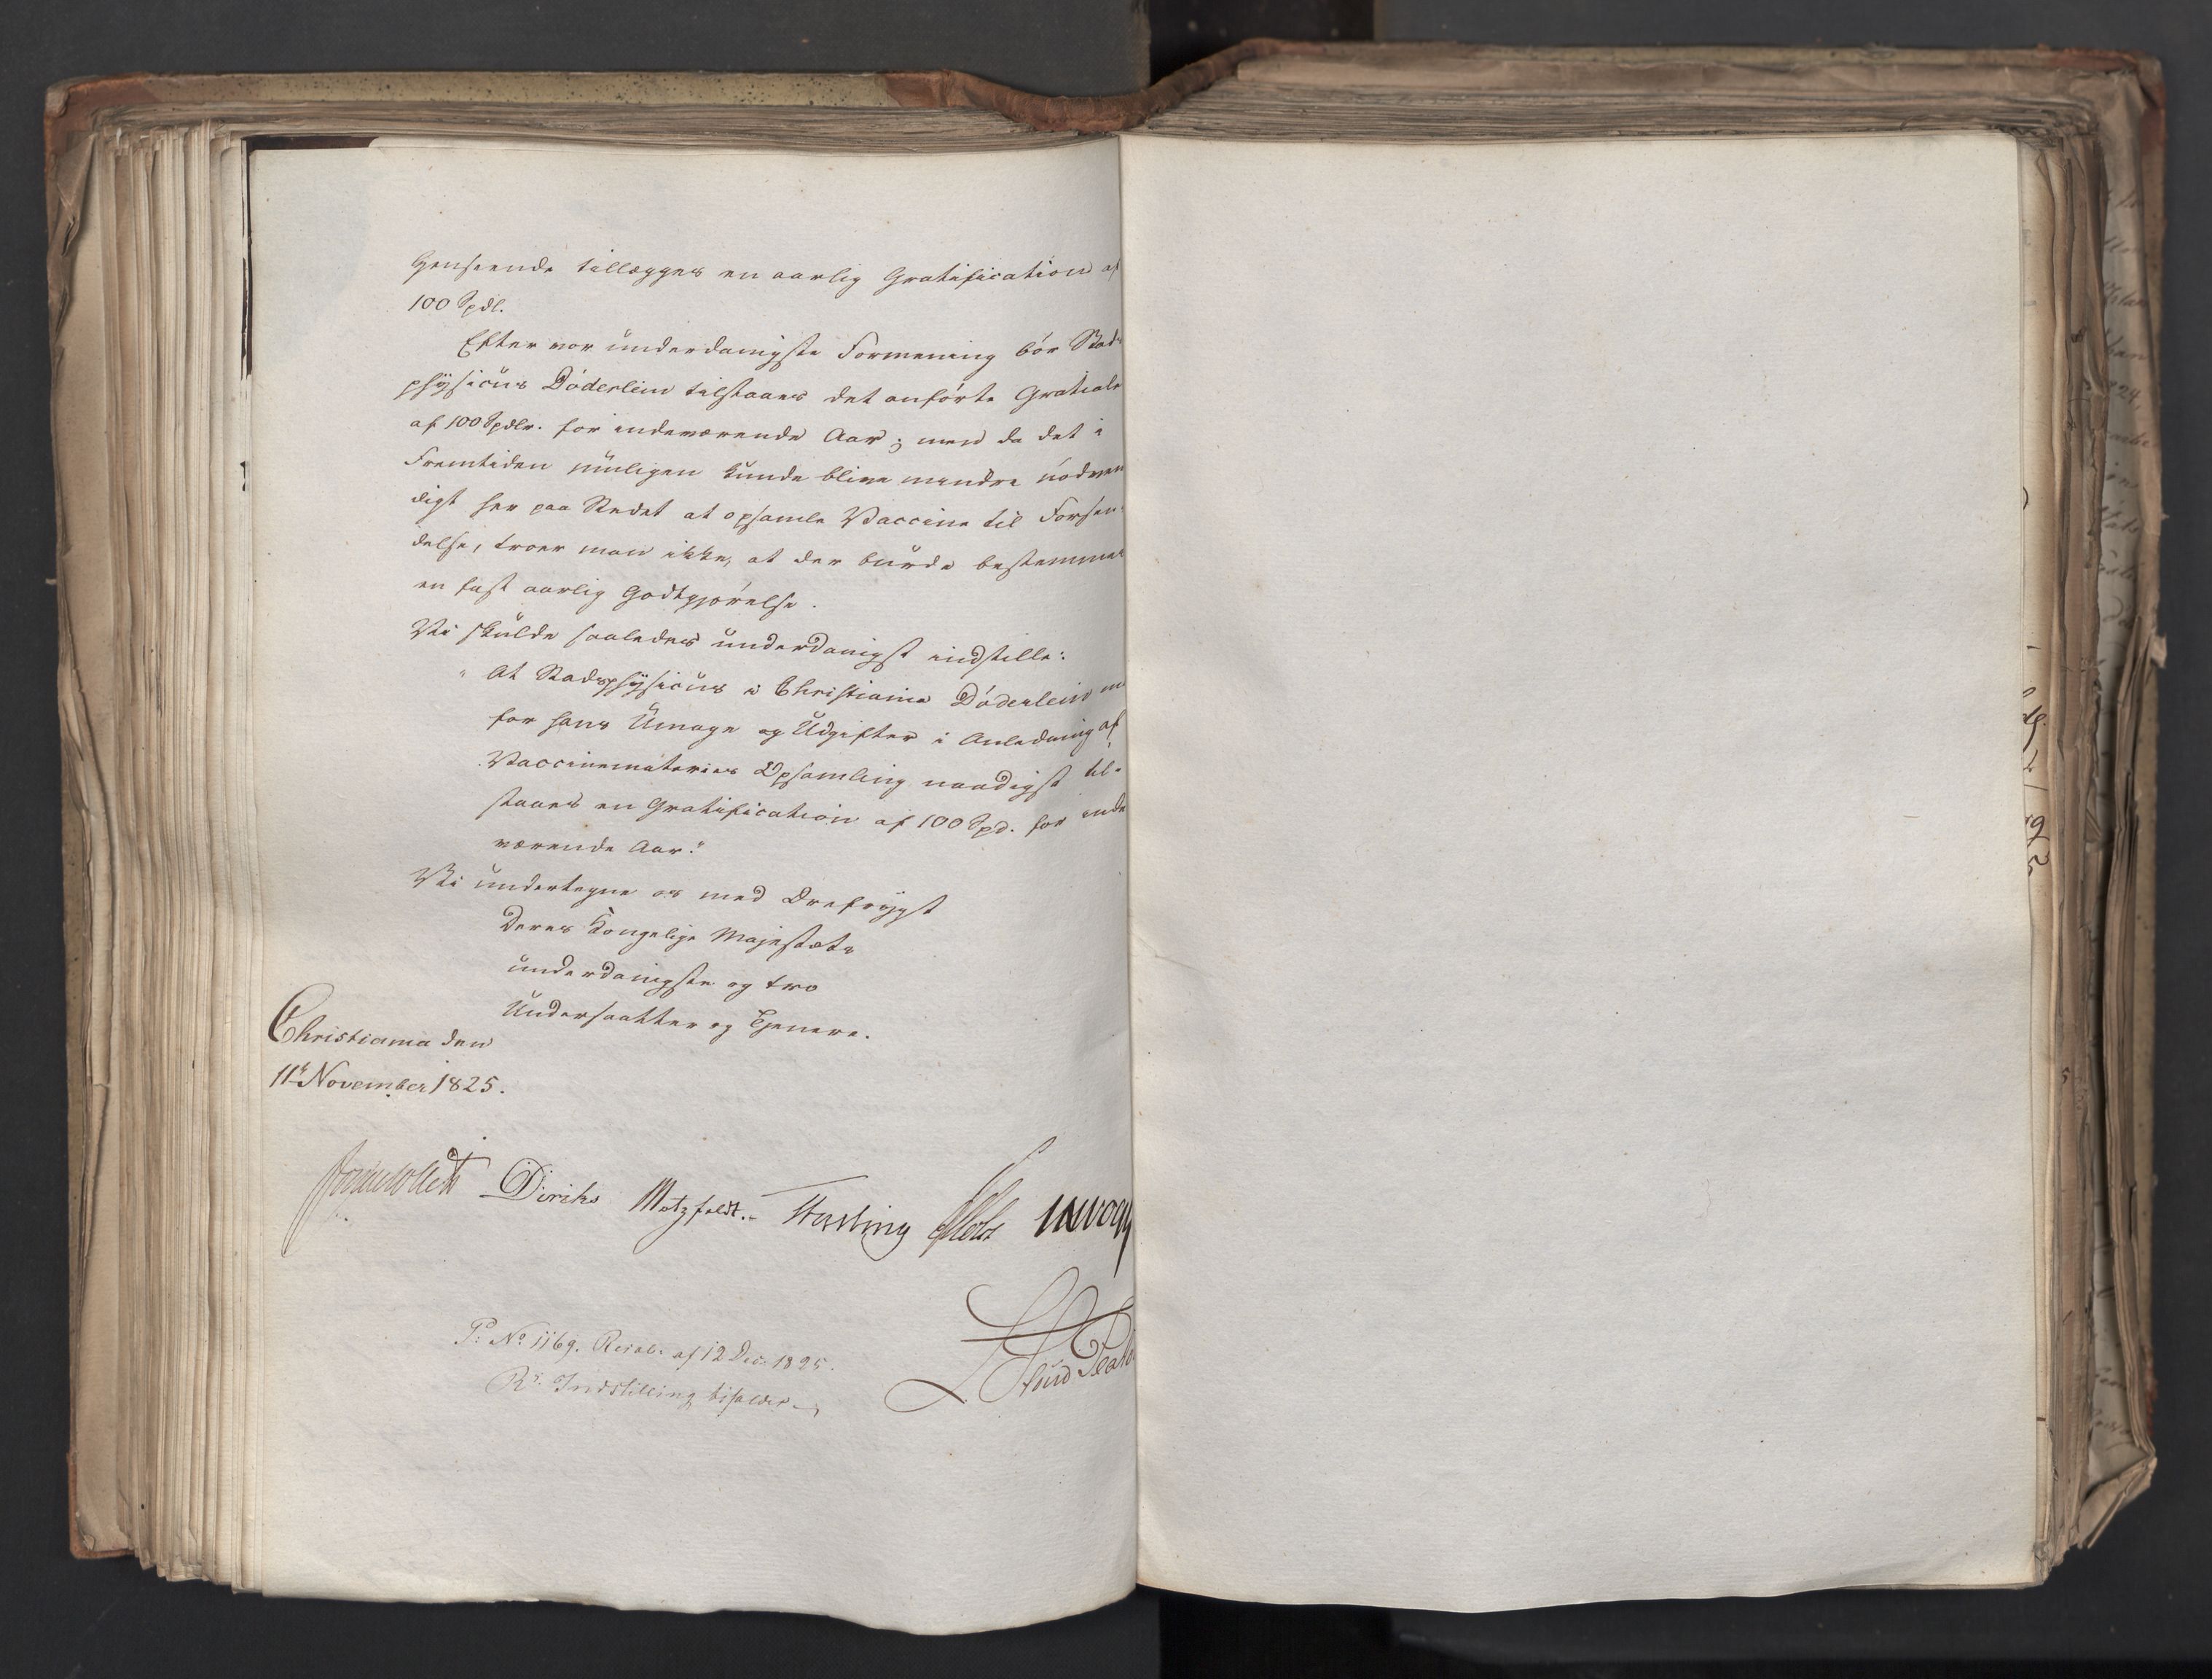 Henseende tillægges en aarlig Gratification af
100 Spdl.
Efter vor underdanigste Formening bør Stads
physicus Döderlein tilstaaes det anførte Gratiale
af 100 Spdlr. for indeværende Aar; men da det i
Fremtiden muligen kunde blive mindre nødven
digt her paa Stedet at opsamle Vaccine til Forsen-
delse, troer man ikke, at der burde bestemmes
en fast aarlig Godtgjørelse.
Vi skulde saaledes underdanigst indstille:
"At Stadsphysicus i Christiania Döderlein
for hans Umage og Udgifter i Anledning af
Vaccinemateries Opsamling naadigst til-
staaes en Gratification af 100 Spd. for inde
værende Aar."
Vi undertegne os med Ærefrygt
Deres Kongelige Majestæts
underdanigste og tro
Undersaatter og Tjenere.
Christiania den
11te November 1825.
Jonas Collett Diriks Motzfeldt. Fasting Holst
P: No 1169. Resol: af 12 Dec. 1825.
Rs Indstilling bifaldes